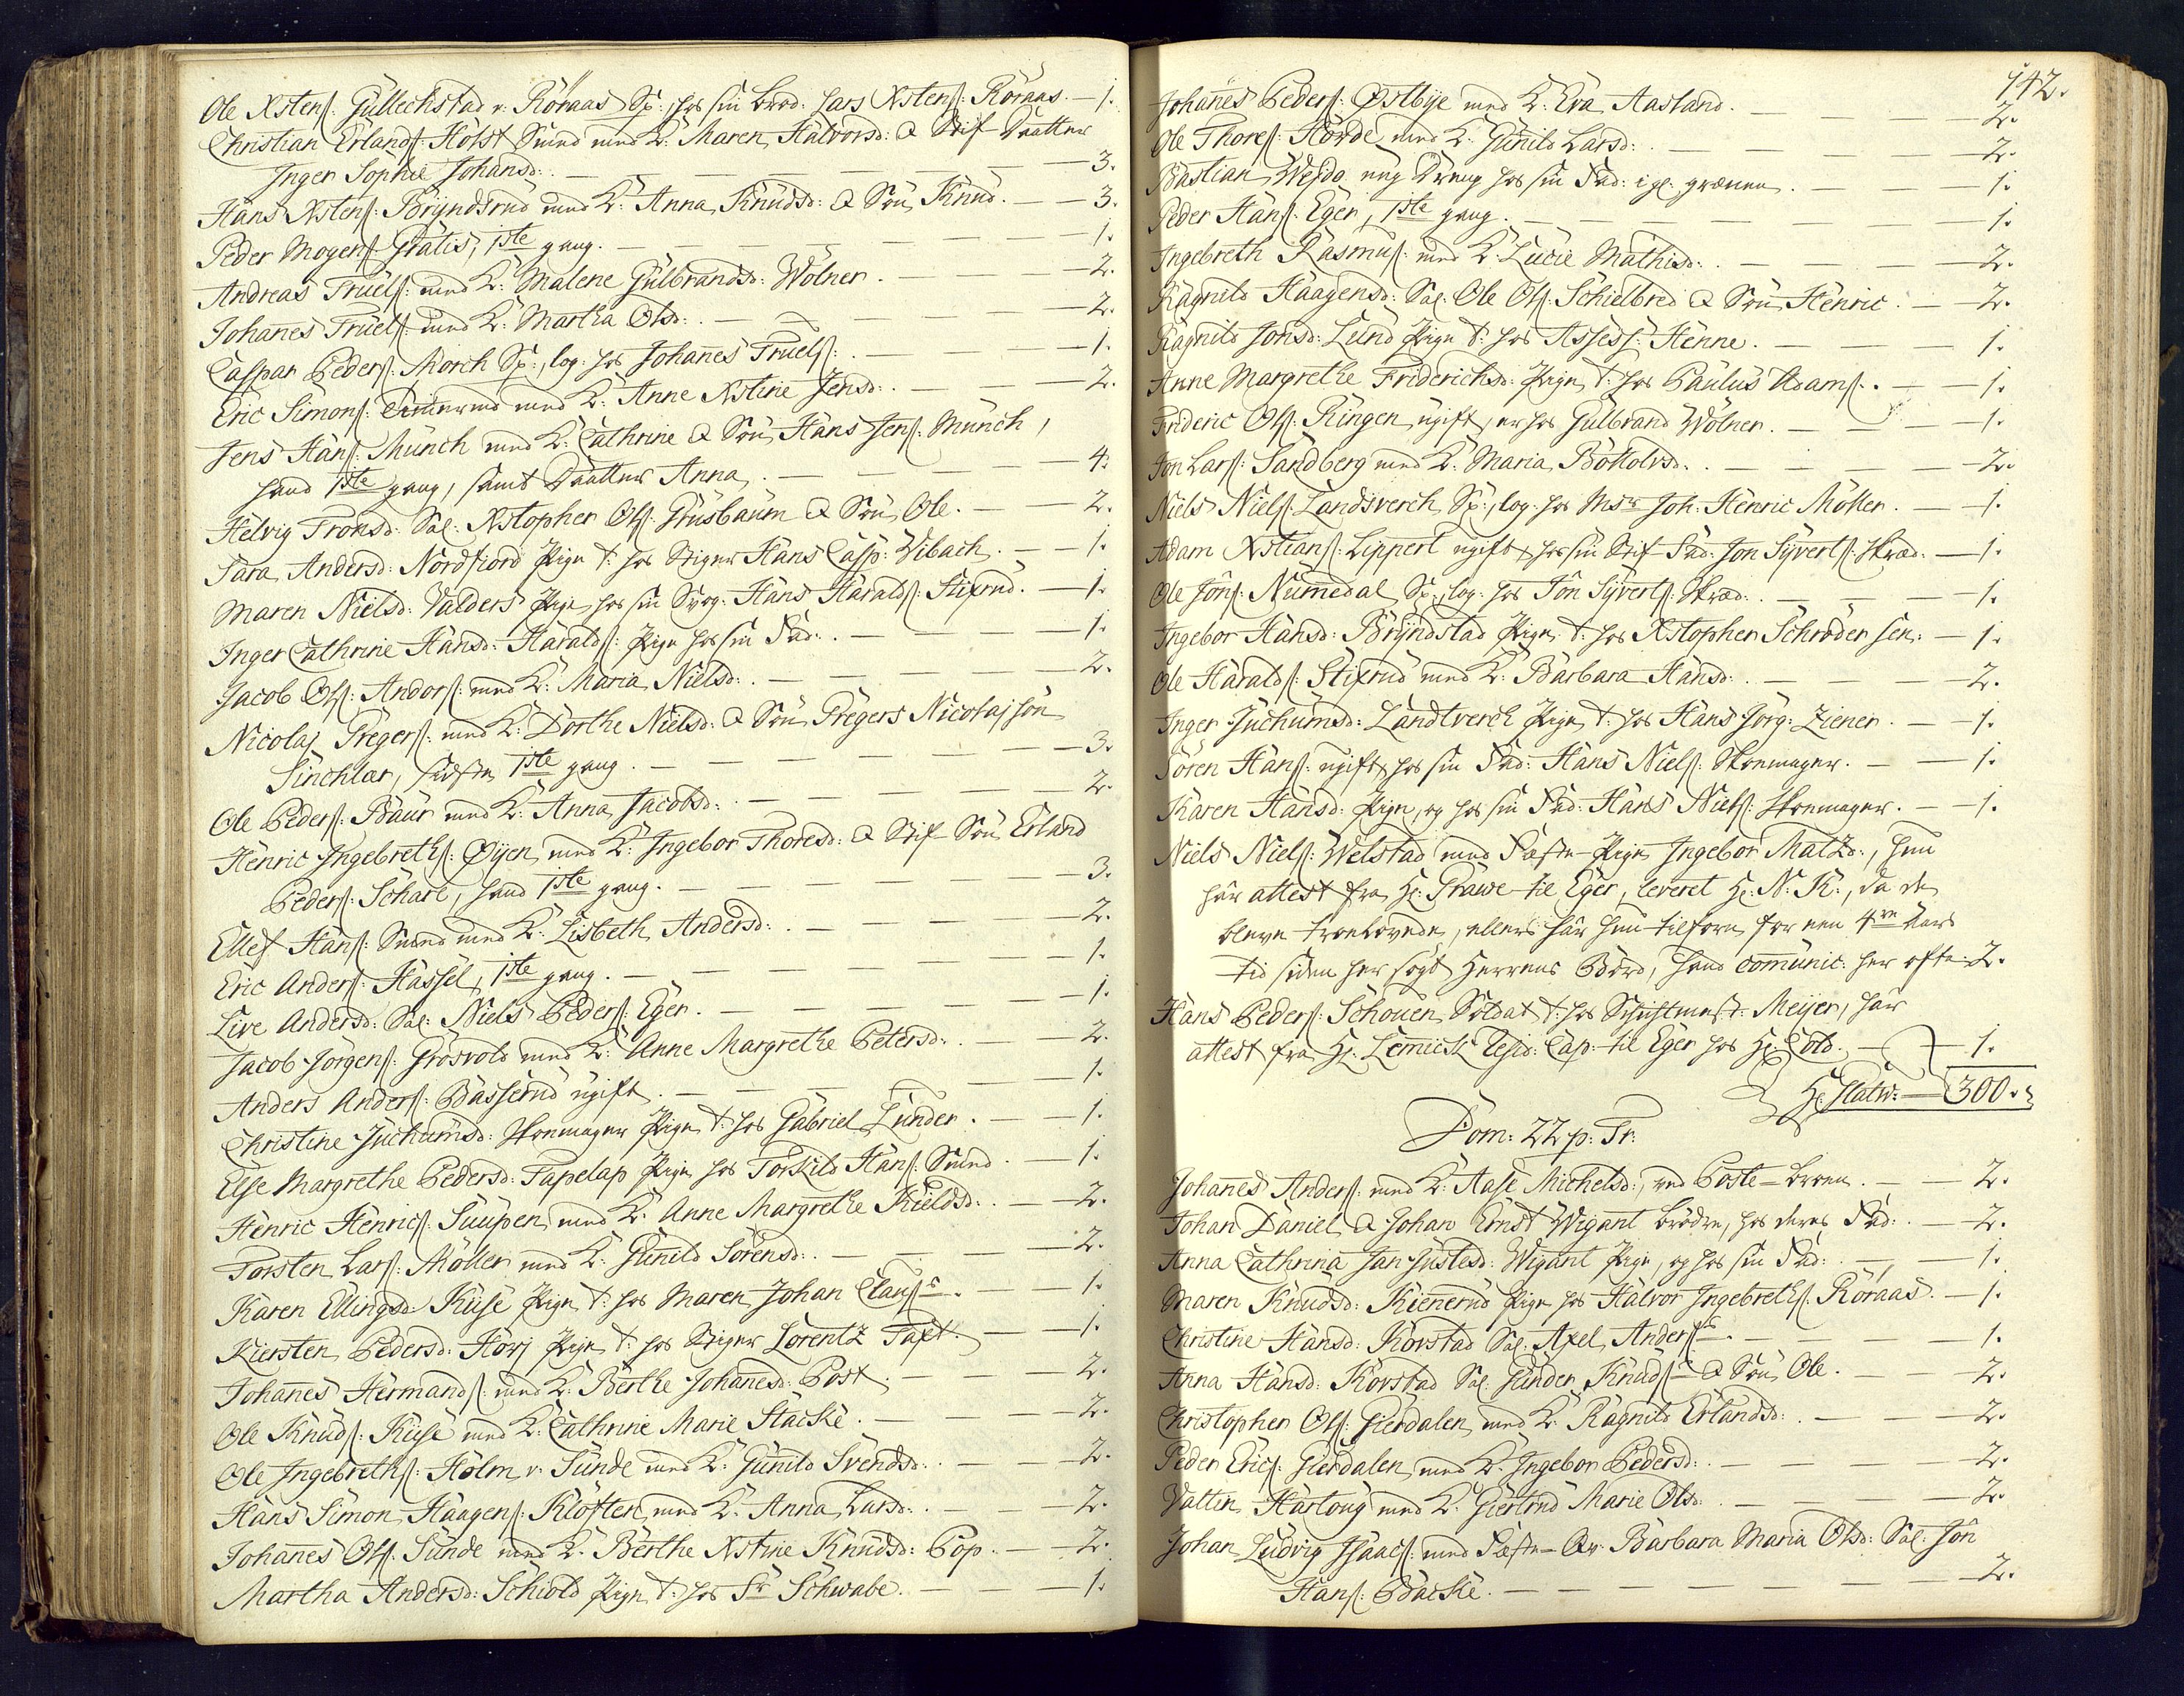 Ole Xstens: Gullechstad v: Röraas Sp: hos sin Brod: Lars Xstens: Röraas. — 1.
Christian Erlands: Holst Smed med K: Maren Halvorsd: & Stif Daatter
Inger Sophie Johansd: — 3.
Hans Xstens: Bryndsrud med K: Anna Knudsd: & Sön Knud. — 3.
Peder Mogens: Gratis, 1ste gang. — 1.
Andreas Truels: med K: Malene Gulbrandsd: Wölner. — 2.
Johanes Truels: med K: Martha Olsd: — 2.
Caspar Peders: Morch Sp:, log: hos Johanes Truels: — 1.
Eric Simons: Timermd med K: Anne Xstine Jensd: — 2.
Jens Hans: Munch med K: Cathrine & Sön Hans Jens: Munch,
hand 1ste gang, samt Daatter Anna. — 4.
Helvig Tronsd: Sal: Xstopher Ols: Grusbaum & Sön Ole. — 2.
Sara Andersd: Nordfiord Pige t: hos Stiger Hans Casp: Wibach. — 1.
Maren Nielsd: Valders Pige hos sin Svog: Hans Haralds: Stixrud. — 1.
Inger Cathrine Hansd: Haralds: Pige hos sin Fad: — 1.
Jacob Ols: Anders: med K: Maria Nielsd: — 2.
Nicolaj Gregers: med K: Dorthe Nielsd: & Sön Gregers Nicolajsön
Sinchlar, sidste 1ste gang. — 3.
Ole Peders: Baur med K: Anna Jacobsd: — 2.
Henric Ingebreths: Öijen med K: Ingebor Thoresd: & Stif Sön Erland
Peders: Schare, hand 1ste gang. — 3.
Ellef Hans: Smed med K: Lisbeth Andersd: — 2.
Eric Anders: Hassel, 1ste gang. — 1.
Live Andersd: Sal: Niels Peders: Eger. — 1.
Jacob Jörgens: Grosvold med K: Anne Margrethe Petersd: — 2.
Anders Anders: Basserud ugift. — 1.
Christine Juchumsd: Skoemager Pige t: hos Gabriel Lunder. — 1.
Else Margrethe Pedersd: Tapelap Pige hos Torkild Hans: Smed. — 1.
Henric Henrics: Suupen med K: Anne Margrethe Kieldsd: — 2.
Torsten Lars: Möller med K: Gunild Sörensd: — 2.
Karen Ellingsd: Kiise Pige t: hos Maren Johan Claus: — 1.
Kiersten Pedersd: Horj Pige t: hos Stiger Lorentz Taft. — 1.
Johanes Hermands: med K: Berthe Johanesd: Post. — 2.
Ole Knuds: Kiise med K: Cathrine Marie Stacke. — 2.
Ole Ingebreths: Holm v: Sunde med K: Gunild Svendsd: — 2.
Hans Simon Haagens: Klöften med K: Anna Larsd: — 2.
Johanes Ols: Sunde med K: Berthe Xstine Knudsd: Pop. — 2.
Martha Andersd: Schiold Pige t: hos Sr Schwabe. — 1.
142.
Johanes Peders: Østbye med K: Eva Aasland. — 2.
Ole Thores: Hörde med K: Gunild Larsd: — 2.
Bastian Wesdo ung Dreng hos sin Fad: i gl: grænen. — 1.
Peder Hans: Eger, 1ste gang. — 1.
Ingebreth Rasmus: med K: Lucie Mathisd: — 2.
Ragnild Haagensd: Sal: Ole Ols: Schielbred & Sön Henric. — 2.
Ragnild Jonsd: Lund Pige t: hos Assess: Henne. — 1.
Anne Margrethe Friderichsd: Pige t: hos Paulus Adams: — 1.
Frideric Ols: Ringen ugift, er hos Gulbrand Wölner. — 1.
Jon Lars: Sandberg med K: Maria Bottolvsd: — 2.
Niels Niels: Landsverch Sp:, log: hos Msr Joh: Henric Möller. — 1.
Adam Xstians: Lippert ugift & hos sin Stif Fad: Jon Syverts: Skræd: — 1.
Ole Jöns: Numedal Sp:, log: hos Jön Syverts: Skræd: — 1.
Ingebor Hansd: Bryndstad Pige t: hos Xstopher Schröder sen: — 1.
Ole Haralds: Stixrud med K: Barbara Hansd: — 2.
Inger Juchumsd: Landtverch Pige t: hos Hans Jörg: Ziener. — 1.
Sören Hans: ugift & hos sin Fad: Hans Niels: Skoemager. — 1.
Karen Hansd: Pige, og hos sin Fad: Hans Niels: Skoemager. — 1.
Niels Niels: Welstad med Fæste-Pige Ingebor Matzd:, hun
har attest fra Hr: Grawe til Eger, leveret Hr: N: K:, da de
bleve troelovede, ellers har hun tilforn for een 4re Aars
tid siden her sögt Herrens Bord, hand comunic: her ofte. 2.
Hans Peders: Schouen Soldat t: hos Schichtmest: Meijer, har
attest fra Hr: Lemick Resid: Cap: til Eger hos Hr: Cold. — 1.
Hr: Slatw: — 300.
Dom: 22 p: Tr:
Johanes Anders: med K: Aase Michelsd:, ved Poste-broen. — 2.
Johan Daniel & Johan Ernst Wigant brödre, hos deres Fad: — 2.
Anna Cathrina Jan Justesd: Wigant Pige, og hos sin Fad: — 1.
Maren Knudsd: Kienerud Pige hos Halvor Ingebreths: Röraas. — 1.
Christine Hansd: Korstad Sal: Axel Anders: — 1.
Anna Hansd: Korstad Sal: Gunder Knuds: & Sön Ole. — 2.
Christopher Ols: Gierdalen med K: Ragnild Erlandsd: — 2.
Peder Erics: Gierdalen med K: Ingebor Pedersd: — 2.
Valtin Hartoug med K: Giertrud Marie Olsd: — 2.
Johan Ludvig Isaacs: med Fæste-Qv: Barbara Maria Olsd: Sal: Jön
Hans: Backe. — 2.